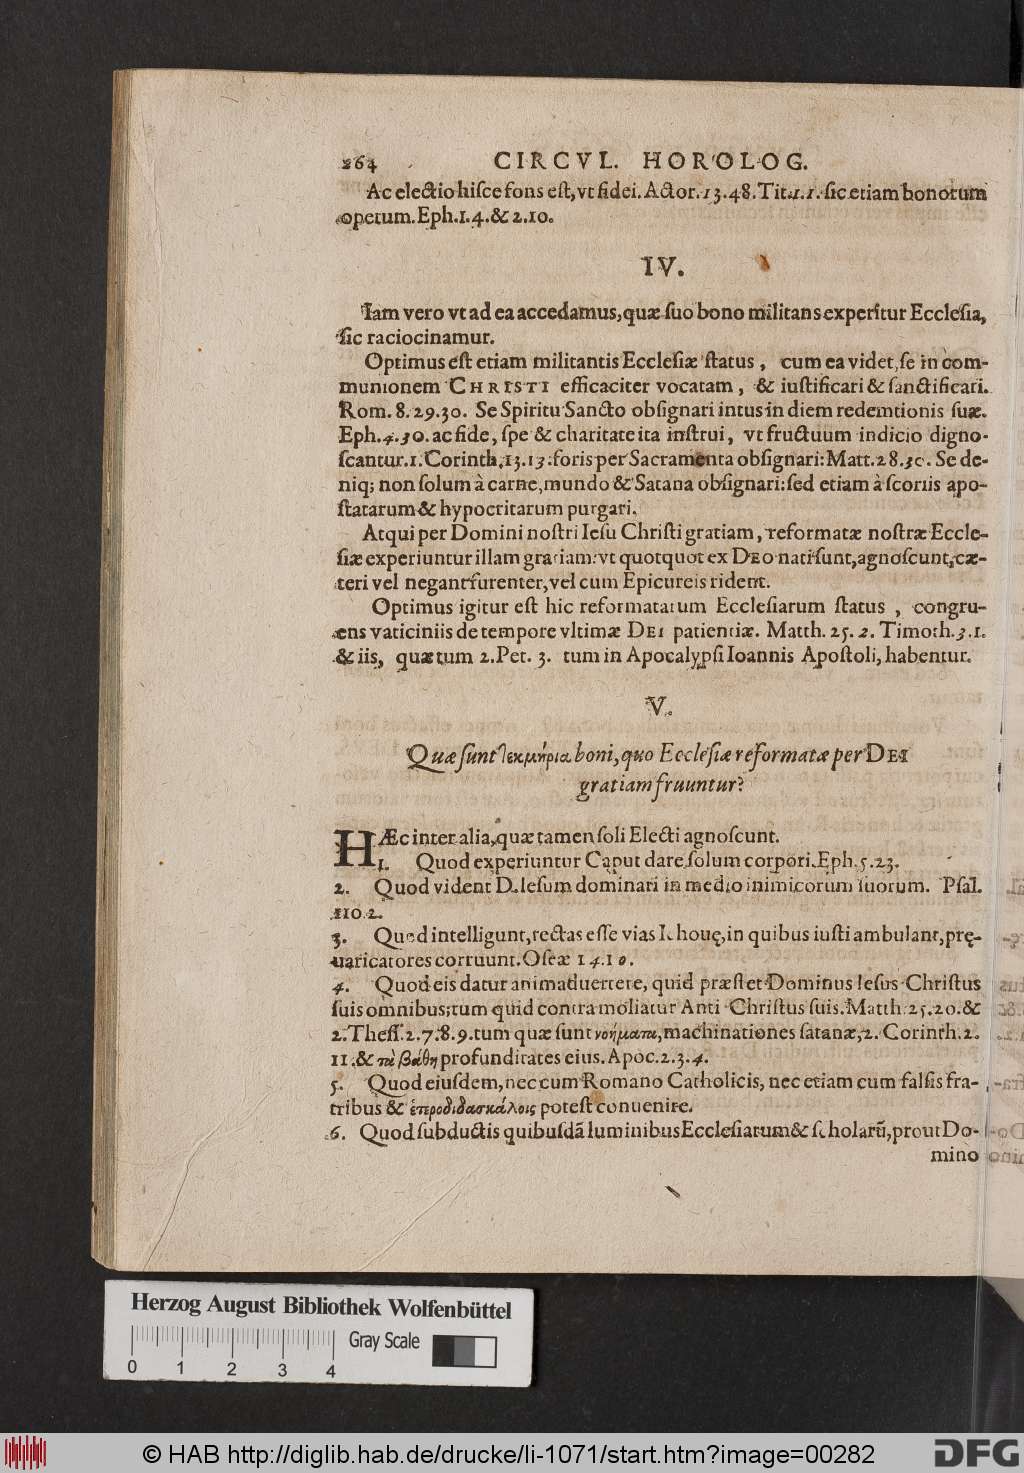 264 CIRCVL. HOROLOG.
Ac electio hisce fons est, vt fidei. Actor. 13. 48. Tit. 1. 1. sic etiam bonorum
operum. Eph. 1. 4. & 2. 10.
IV.
Iam vero vt ad ea accedamus, quæ suo bono militans experitur Ecclesia,
sic raciocinamur.
Optimus est etiam militantis Ecclesiæ status, cum ea videt, se in com-
munionem CHRISTI efficaciter vocatam, & iustificari & sanctificari.
Rom. 8. 29. 30. Se Spiritu Sancto obsignari intus in diem redemtionis suæ.
Eph. 4. 30. ac fide, spe & charitate ita instrui, vt fructuum indicio digno-
scantur. 1. Corinth. 13. 13: foris per Sacramenta obsignari: Matt. 28. 30. Se de-
niq; non solum à carne, mundo & Satana obsignari: sed etiam à scoriis apo-
statarum & hypocritarum purgari.
Atqui per Domini nostri Iesu Christi gratiam, reformatæ nostræ Eccle-
siæ experiuntur illam gratiam: vt quotquot ex DEO nati sunt, agnoscunt, cæ-
teri vel negant furenter, vel cum Epicureis rident.
Optimus igitur est hic reformatarum Ecclesiarum status, congru-
ens vaticiniis de tempore vltimæ DEI patientiæ. Matth. 25. 2. Timoth. 3. 1.
& iis, quæ tum 2. Pet. 3. tum in Apocalypsi Ioannis Apostoli, habentur.
V.
Quæ sunt τεκμήρια boni, quo Ecclesiæ reformatæ per DEI
gratiam fruuntur?
HÆc inter alia, quæ tamen soli Electi agnoscunt.
1. Quod experiuntur Caput dare solum corpori. Eph. 5. 23.
2. Quod vident D. Iesum dominari in medio inimicorum suorum. Psal.
110. 2.
3. Quod intelligunt, rectas esse vias Iehouę, in quibus iusti ambulant, prę-
uaricatores corruunt. Oseæ 14. 10.
4. Quod eis datur animaduertere, quid præstet Dominus Iesus Christus
suis omnibus; tum quid contra moliatur Anti-Christus suis. Matth. 25. 20. &
2. Thess. 2. 7. 8. 9. tum quæ sunt νοήματα, machinationes satanæ, 2. Corinth. 2.
11. & τὰ βάθη profunditates eius. Apoc. 2. 3. 4.
5. Quod eiusdem, nec cum Romano Catholicis, nec etiam cum falsis fra-
tribus & ἑτεροδιδασκάλοις potest conuenire.
6. Quod subductis quibusdā luminibus Ecclesiarum & scholarū, prout Do-
mino
Herzog August Bibliothek Wolfenbüttel
Gray Scale
0 1 2 3 4
© HAB http://diglib.hab.de/drucke/li-1071/start.htm?image=00282
DFG